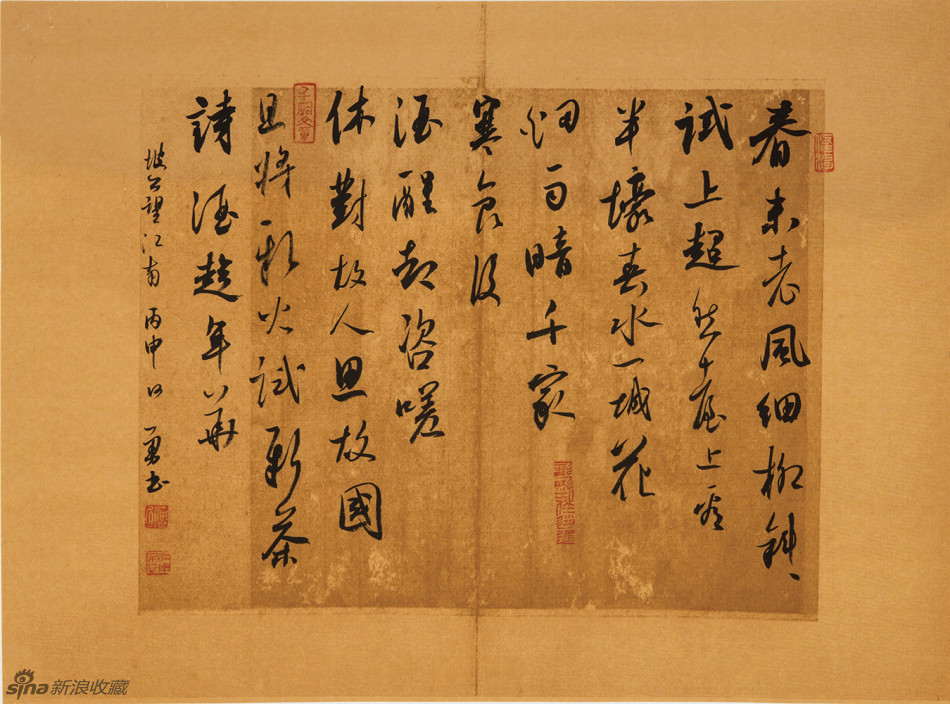 春未老風細柳斜〻
試上超然臺上看
半壕春水一城花
烟雨暗千家
寒食後
酒醒却咨嗟
休對故人思故國
且將新火試新茶
詩酒趁年華
坡公望江南 丙申 勇书
sina新浪收藏